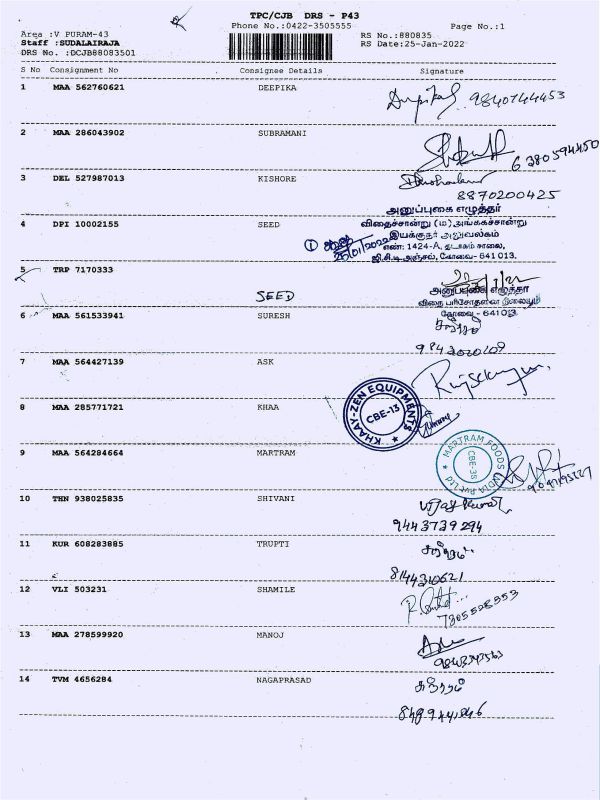 TPC/CJB DRS - P43
Phone No.:0422-3505555 Page No.:1
Area :V PURAM-43 RS No.:880835
Staff :SUDALAIRAJA RS Date:25-Jan-2022
DRS No. :DCJB88083501
S No Consignment No Consignee Details Signature
1 MAA 562760621 DEEPIKA
9840744453
2 MAA 286043902 SUBRAMANI
6380594450
3 DEL 527987013 KISHORE
8870200425
அனுப்புகை எழுத்தர்
4 DPI 10002155 SEED விதைச்சான்று (ம) அங்ககச்சான்று
இயக்குநர் அலுவலகம்
எண்: 1424-A, தடாகம் சாலை,
ஜி.சி.டி அஞ்சல், கோவை - 641 013.
5 TRP 7170333
SEED
கோவை - 641013
6 MAA 561533941 SURESH
7 MAA 564427139 ASK
8 MAA 285771721 KHAA
KHAAY-ZEN EQUIPMENTS
CBE-13
9 MAA 564284664 MARTRAM
MARTRAM FOODS INDIA Pvt Ltd
CBE-38
10 THN 938025835 SHIVANI
9443739294
11 KUR 608283885 TRUPTI
8144310621
12 VLI 503231 SHAMILE
13 MAA 278599920 MANOJ
14 TVM 4656284 NAGAPRASAD